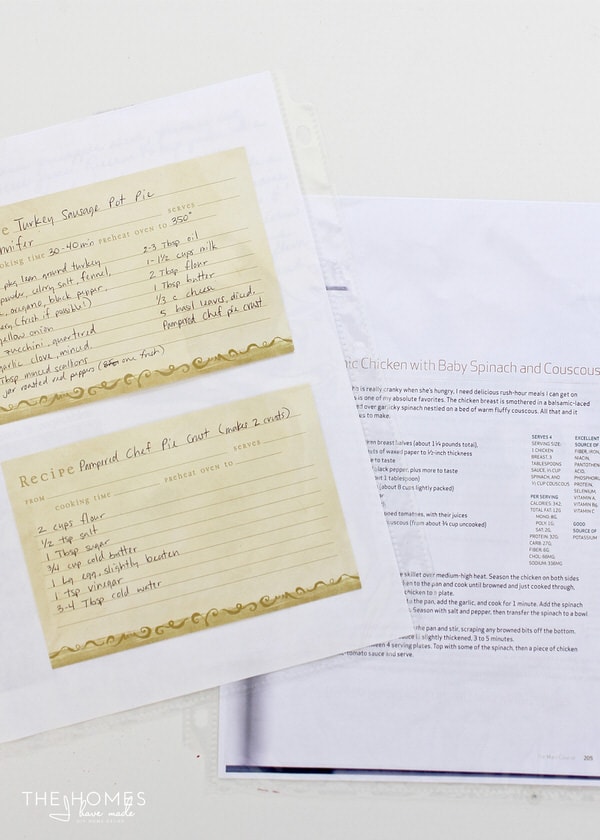 Turkey Sausage Pot Pie
serves
cooking time 30-40 min preheat oven to 350°
pkg lean ground turkey
powder, celery salt, fennel,
oregano, black pepper,
(fresh if possible!)
yellow onion
zucchini, quartered
garlic clove, minced
Tbsp minced scallions
jar roasted red peppers (or one fresh)
2-3 Tbsp oil
1-1½ cups milk
2 Tbsp flour
1 Tbsp butter
1/3 c cheese
5 basil leaves, diced,
Pampered Chef pie crust
Recipe Pampered Chef Pie Crust (makes 2 crusts)
FROM serves
cooking time preheat oven to
2 cups flour
½ tsp salt
1 Tbsp sugar
3/4 cup cold butter
1 Lg egg, slightly beaten
1 tsp vinegar
3-4 Tbsp cold water
Chicken with Baby Spinach and Couscous
is really cranky when she's hungry, I need delicious rush-hour meals I can get on
is one of my absolute favorites. The chicken breast is smothered in a balsamic-laced
over garlicky spinach nestled on a bed of warm fluffy couscous. All that and it
to make.
chicken breast halves (about 1¼ pounds total),
of waxed paper to ½-inch thickness
to taste
black pepper, plus more to taste
1 tablespoon)
(about 8 cups lightly packed)
tomatoes, with their juices
couscous (from about ¾ cup uncooked)
SERVES 4
SERVING SIZE:
1 CHICKEN
BREAST, 3
TABLESPOONS
SAUCE, ½ CUP
SPINACH, AND
½ CUP COUSCOUS
PER SERVING
CALORIES: 342;
TOTAL FAT: 12G
MONO: 8G,
POLY: 1G,
SAT: 2G;
PROTEIN: 32G;
CARB: 27G;
FIBER: 6G;
CHOL: 66MG;
SODIUM: 336MG
EXCELLENT
SOURCE OF
FIBER, IRON,
NIACIN,
PROTEIN,
SELENIUM,
VITAMIN A,
VITAMIN B6,
VITAMIN C
GOOD
SOURCE OF
POTASSIUM
skillet over medium-high heat. Season the chicken on both sides
to the pan and cook until browned and just cooked through,
chicken to a plate.
to the pan, add the garlic, and cook for 1 minute. Add the spinach
Season with salt and pepper, then transfer the spinach to a bowl.
the pan and stir, scraping any browned bits off the bottom.
is slightly thickened, 3 to 5 minutes.
4 serving plates. Top with some of the spinach, then a piece of chicken
tomato sauce and serve.
The Main Course 205
THE HOMES
I have made